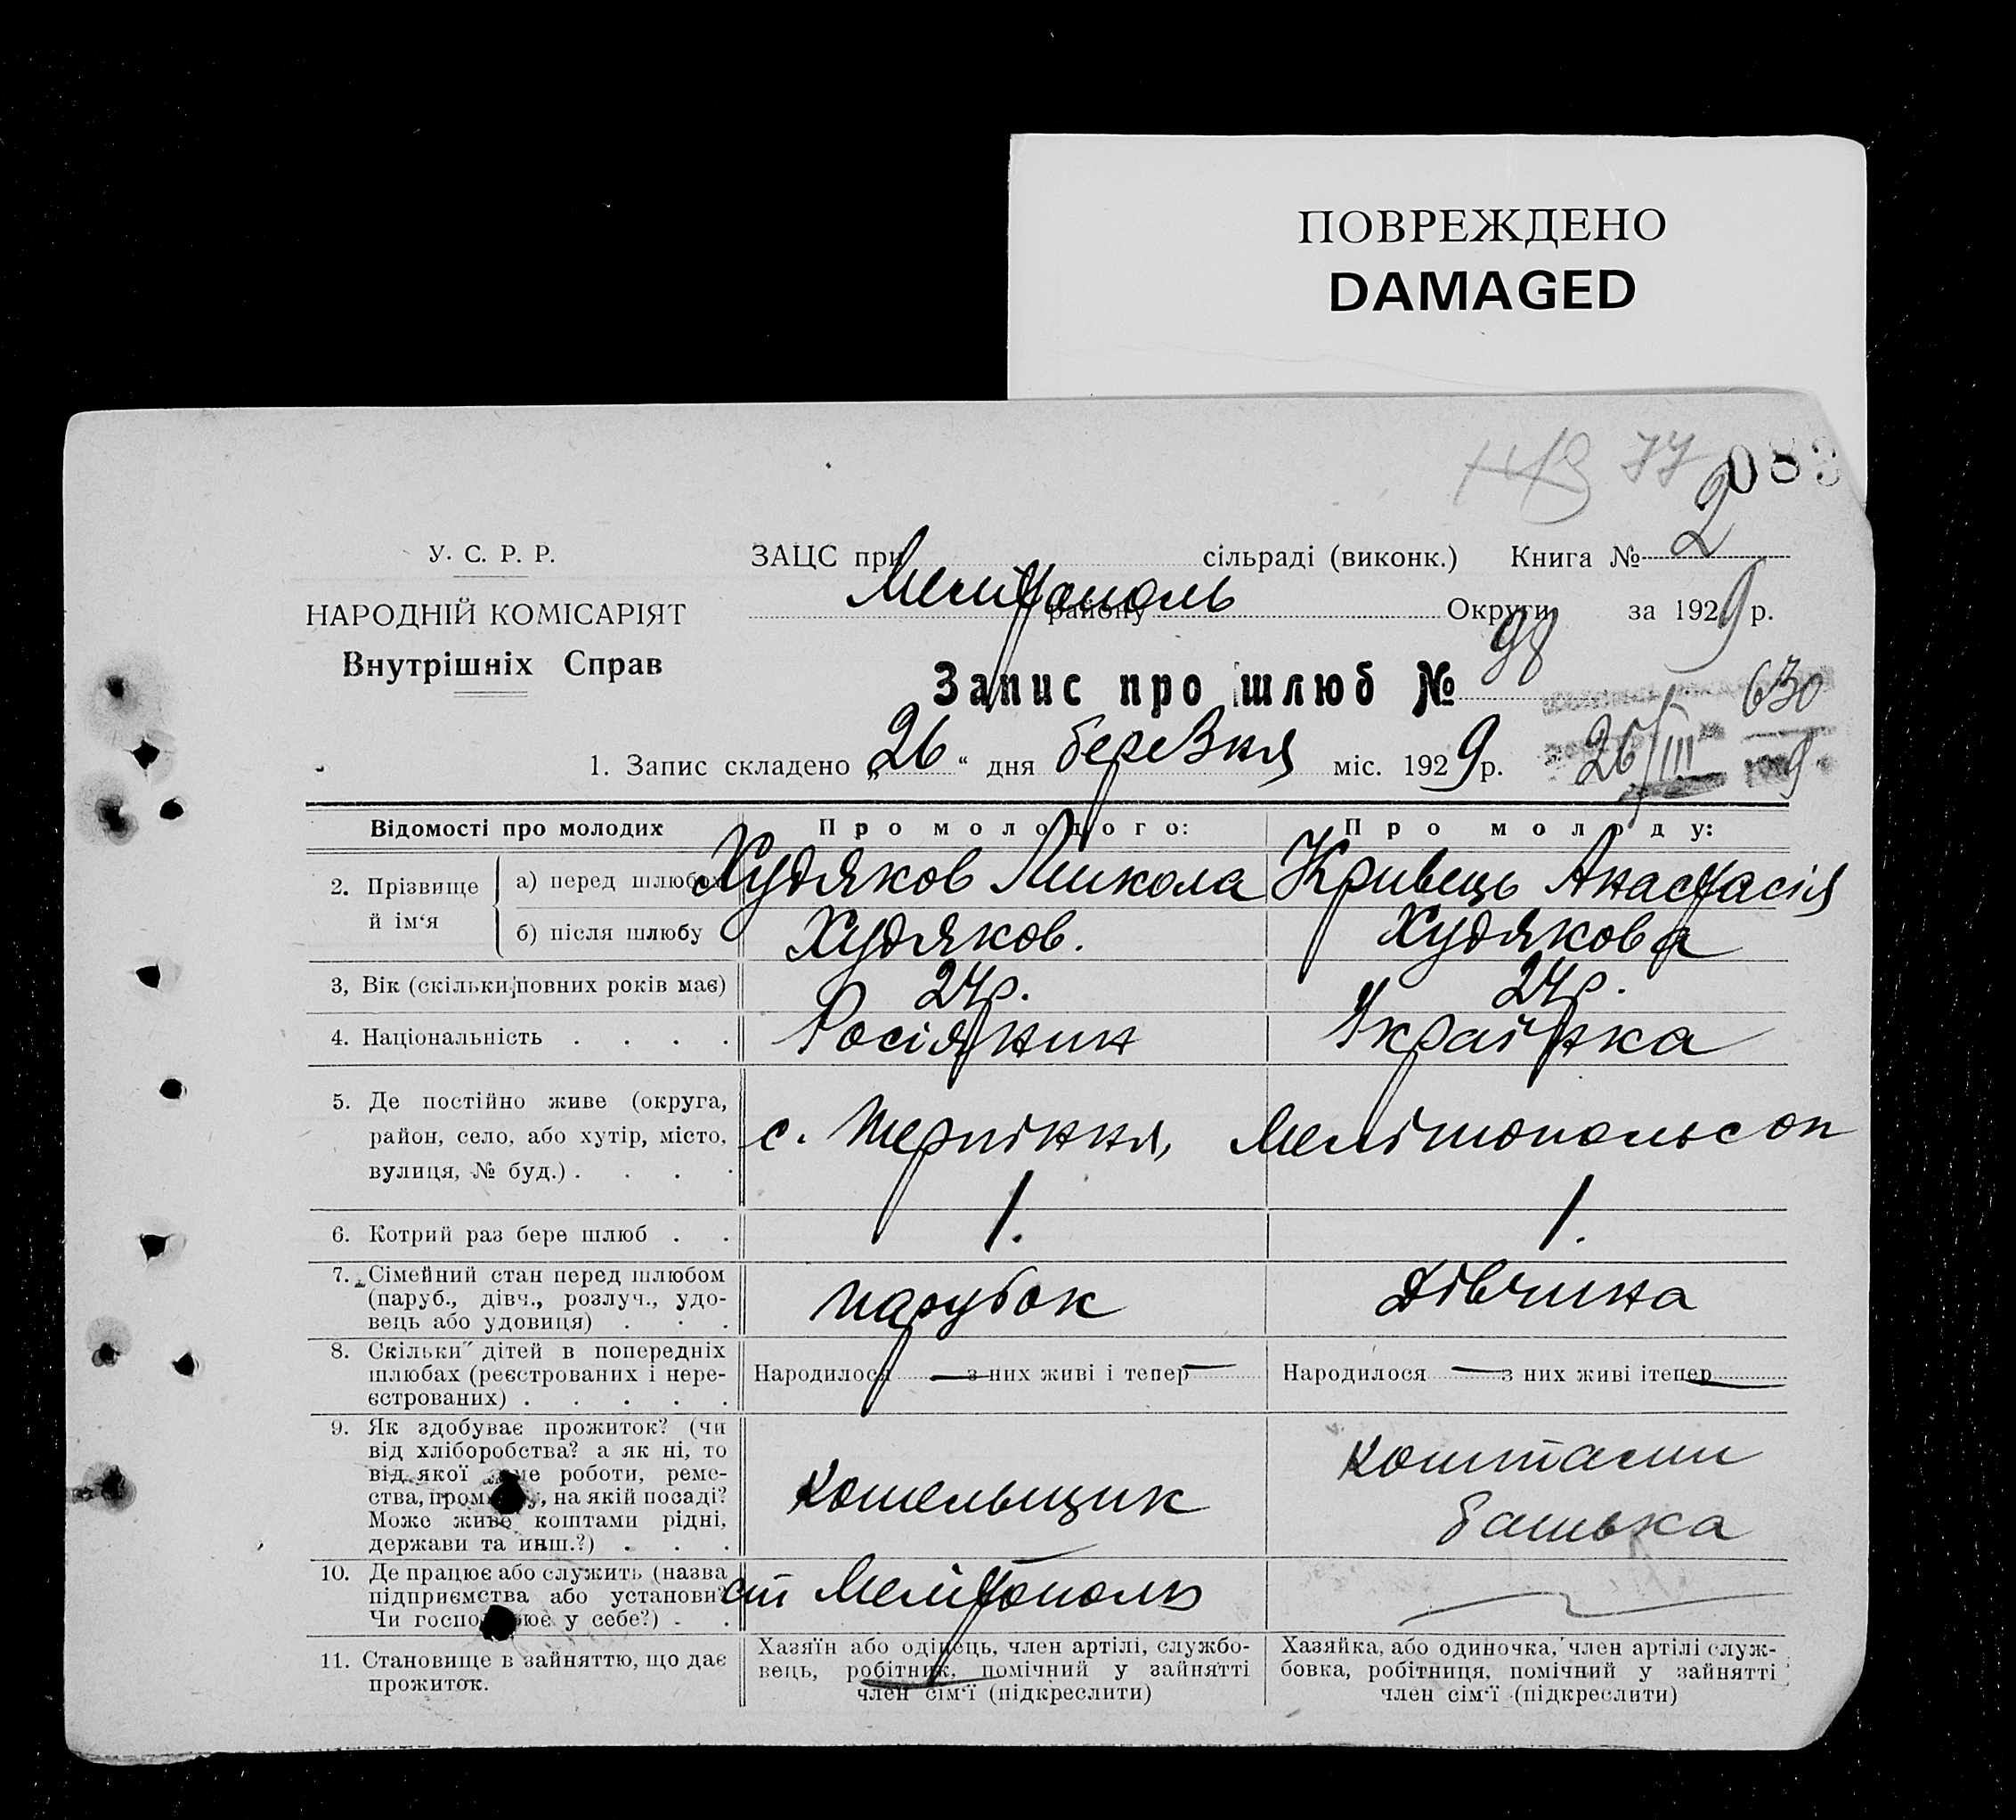 ПОВРЕЖДЕНО
DAMAGED
77 083
У. С. Р. Р.
НАРОДНІЙ КОМІСАРІЯТ
Внутрішніх Справ
ЗАЦС при сільраді (виконк.) Книга № 2
Мелітополь району Округи за 1929 р.
Запис про шлюб № 98
630
1. Запис складено „26“ дня березня міс. 1929 р. 26/III 9
Відомості про молодих Про молодого: Про молоду:
2. Прізвище й ім‘я
а) перед шлюбом Худяков Микола Кривець Анастасія
б) після шлюбу Худяков. Худякова
3, Вік (скільки повних років має) 24 р. 24 р.
4. Національність . . . . Росіянин Українка
5. Де постійно живе (округа,
район, село, або хутір, місто,
вулиця, № буд.) . . . .
с. Терпіння, Мелітопольс оп
6. Котрий раз бере шлюб . . 1. 1.
7. Сімейний стан перед шлюбом
(паруб., дівч., розлуч., удо-
вець або удовиця) . . .
парубок Дівчина
8. Скільки дітей в попередніх
шлюбах (реєстрованих і нере-
єстрованих) . . . . .
Народилося — з них живі і тепер — Народилося — з них живі ітепер —
9. Як здобуває прожиток? (чи
від хліборобства? а як ні, то
від якої саме роботи, реме-
ства, промислу, на якій посаді?
Може живе коштами рідні,
держави та инш.?) . . .
Котельщик
Коштами
батька
10. Де працює або служить (назва
підприємства або установи?
Чи господарює у себе?) . .
ст Мелітополь
11. Становище в зайняттю, що дає
прожиток.
Хазяїн або одінець, член артілі, службо-
вець, робітник, помічний у зайнятті
член сім‘ї (підкреслити)
Хазяйка, або одиночка, член артілі служ-
бовка, робітниця, помічний у зайнятті
член сім‘ї (підкреслити)